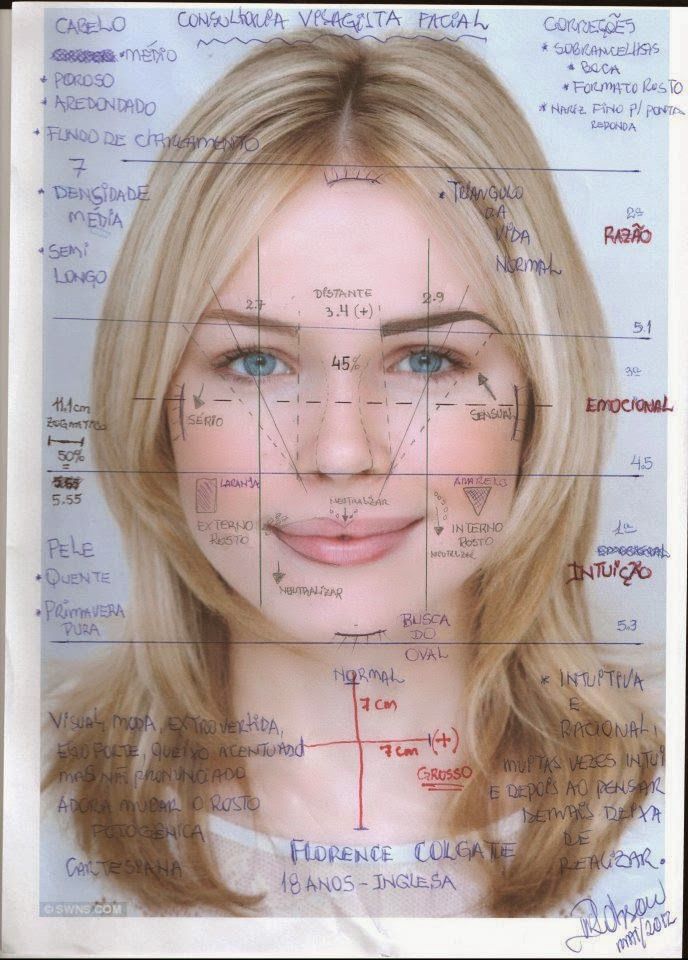 CONSULTORIA VISAGISTA FACIAL
CABELO
MÉDIO
• POROSO
• AREDONDADO
• FUNDO DE CLAREAMENTO
7
• DENSIDADE
MÉDIA
• SEMI
LONGO
CORREÇÕES
* SOBRANCELHAS
* BOCA
* FORMATO ROSTO
* NARIZ FINO P/ PONTA
REDONDA
* TRIANGULO
DA
VIDA
NORMAL
2ª
RAZÃO
DISTANTE
3.4 (+)
2.7
2.9
5.1
45%
3ª
EMOCIONAL
SÉRIO
SENSUAL
11.1cm
ZIGOMATICO
50%
5.55
4.5
LARANJA
AMARELO
NEUTRALIZAR
EXTERNO
ROSTO
INTERNO
ROSTO
NEUTRALIZAR
NEUTRALIZAR
1ª
INTUIÇÃO
PELE
• QUENTE
• PRIMAVERA
PURA
5.3
BUSCA
DO
OVAL
NORMAL
7 cm
7 cm (+)
GROSSO
VISUAL, MODA, EXTROVERTIDA,
QUEIXO ACENTUADO
MAS NÃO PRONUNCIADO
ADORA MUDAR O ROSTO
FOTOGÊNICA
CARTESIANA
* INTUITIVA
E
RACIONAL,
MUITAS VEZES INTUI
E DEPOIS AO PENSAR
DEMAIS DEIXA
DE
REALIZAR.
FLORENCE COLGATE
18 ANOS - INGLESA
© SWNS.COM
MAI/2012